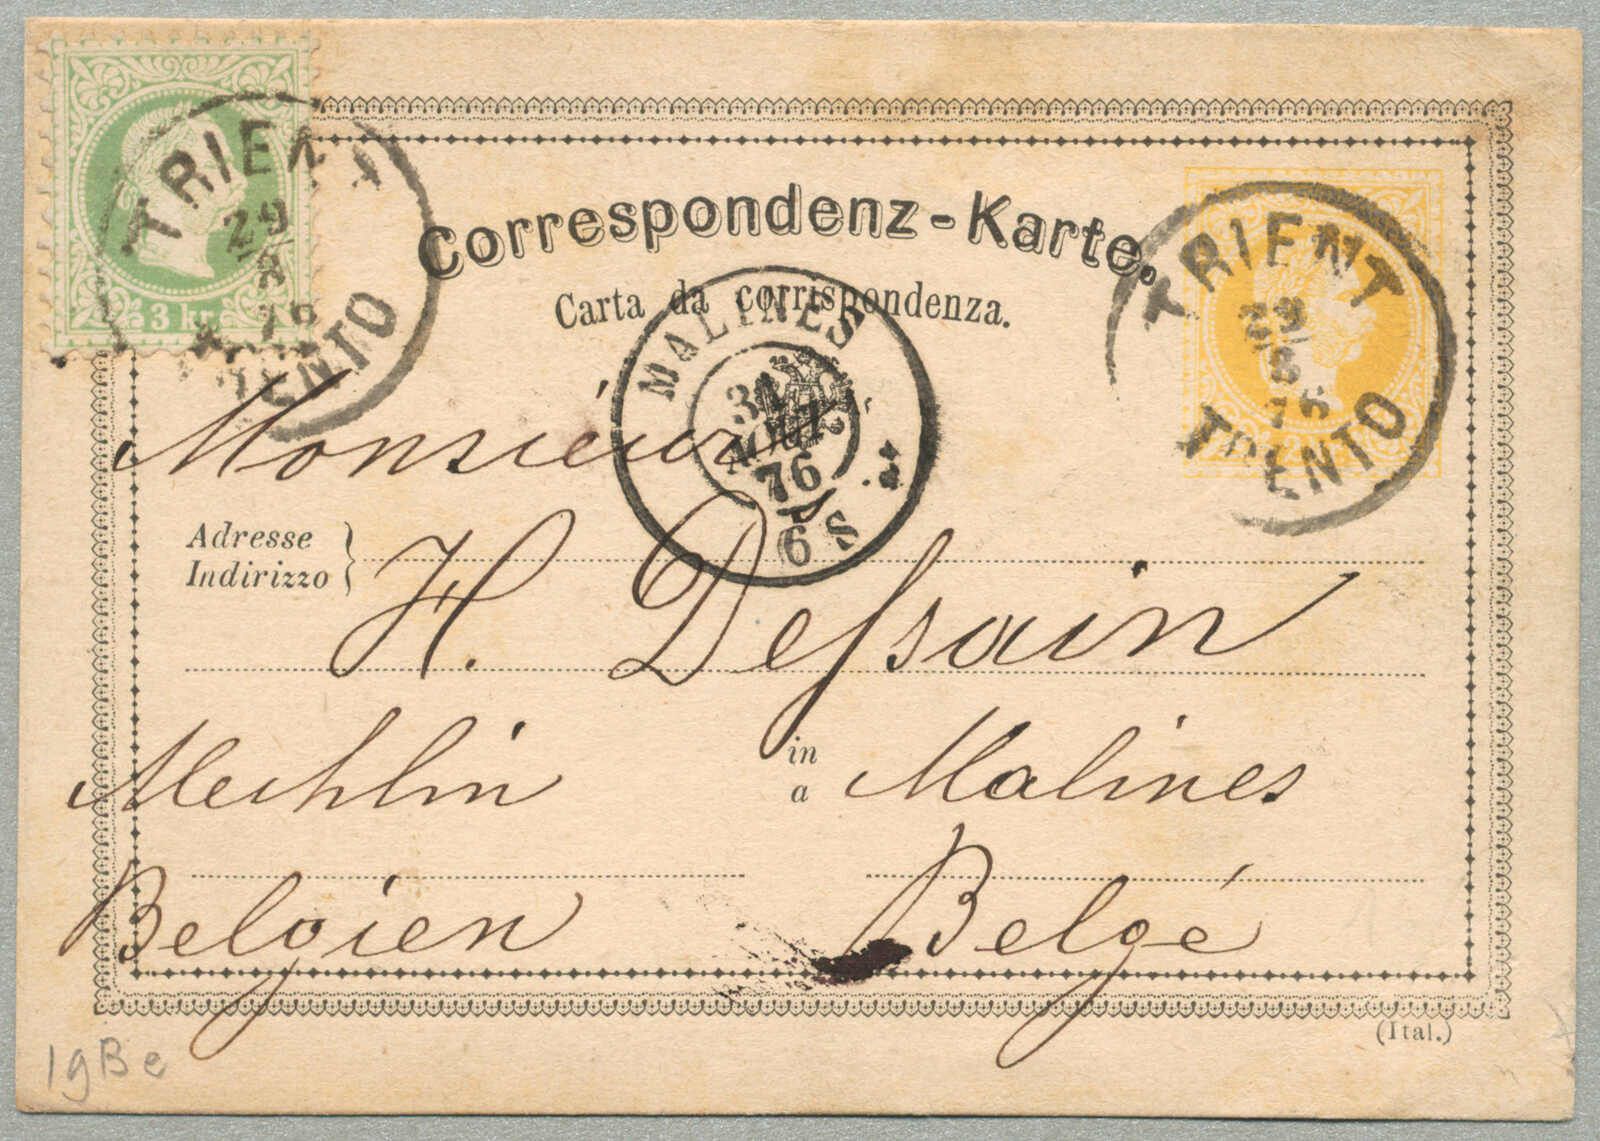 3 kr
TRIENT
29/8
76
TRENTO
Correspondenz-Karte.
Carta da corrispondenza.
TRIENT
29/8
76
TRENTO
MALINES
31
AOUT
76
6 S
Monsieur
Adresse
Indirizzo
H. Deſsain
Mechlin
in
a
Malines
Belgien
Belgé
(Ital.)
19Be